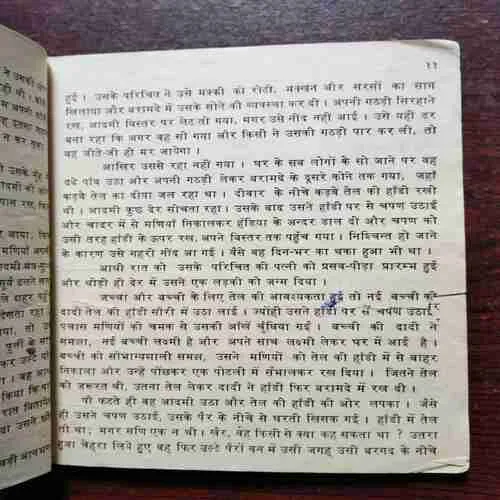 ने उसकी
११
हुई । उसके परिचित ने उसे मक्की की रोटी, मक्खन और सरसों का साग
खिलाया और बरामदे में उसके सोने की व्यवस्था कर दी । अपनी गठड़ी सिरहाने
रख, आदमी बिस्तर पर लेट तो गया, मगर उसे नींद नहीं आई । उसे यही डर
बना रहा कि अगर वह सो गया और किसी ने उसकी गठड़ी पार कर ली, तो
वह जीते-जी ही मर जायेगा ।
आखिर उससे रहा नहीं गया । घर के सब लोगों के सो जाने पर वह
दबे पांव उठा और अपनी गठड़ी लेकर बरामदे के दूसरे कोने तक गया, जहाँ
कड़वे तेल का दीया जल रहा था । दीवार के नीचे कड़वे तेल की हांडी रखी
थी । आदमी कुछ देर सोचता रहा । उसके बाद उसने हांडी पर से चपण उठाई
और चादर में से मणियाँ निकालकर हंडिया के अन्दर डाल दी और चपण को
उसी तरह हांडी के ऊपर रख, अपने बिस्तर तक पहुँच गया । निश्चिन्त हो जाने
के कारण उसे गहरी नींद आ गई । वैसे वह दिन-भर का थका हुआ भी था ।
आधी रात को उसके परिचित की पत्नी को प्रसव-पीड़ा प्रारम्भ हुई
और थोड़ी ही देर में उसने एक लड़की को जन्म दिया ।
जच्चा और बच्ची के लिए तेल की आवश्यकता हुई तो नई बच्ची की
दादी तेल की हांडी सौरी में उठा लाई । ज्योंही उसने हांडी पर से चपण उठाई,
पचास मणियों की चमक से उसकी आँखें चुंधिया गईं । बच्ची की दादी ने
समझा, नई बच्ची लक्ष्मी है और अपने साथ लक्ष्मी लेकर घर में आई है ।
बच्ची को सौभाग्यशाली समझ, उसने मणियों को तेल की हांडी में से बाहर
निकाला और उन्हें पोंछकर एक पोटली में सँभालकर रख दिया । जितने तेल
की जरूरत थी, उतना तेल लेकर दादी ने हांडी फिर बरामदे में रख दी ।
पौ फटते ही वह आदमी उठा और तेल की हांडी की ओर लपका । जैसे
ही उसने चपण उठाई, उसके पैर के नीचे से धरती खिसक गई । हांडी में तेल
तो था; मगर मणि एक न थी । खैर, वह किसी से क्या कह सकता था ? उतरा
हुआ चेहरा लिये हुए वह फिर उल्टे पैरों वन में उसी जगह उसी बरगद के नीचे